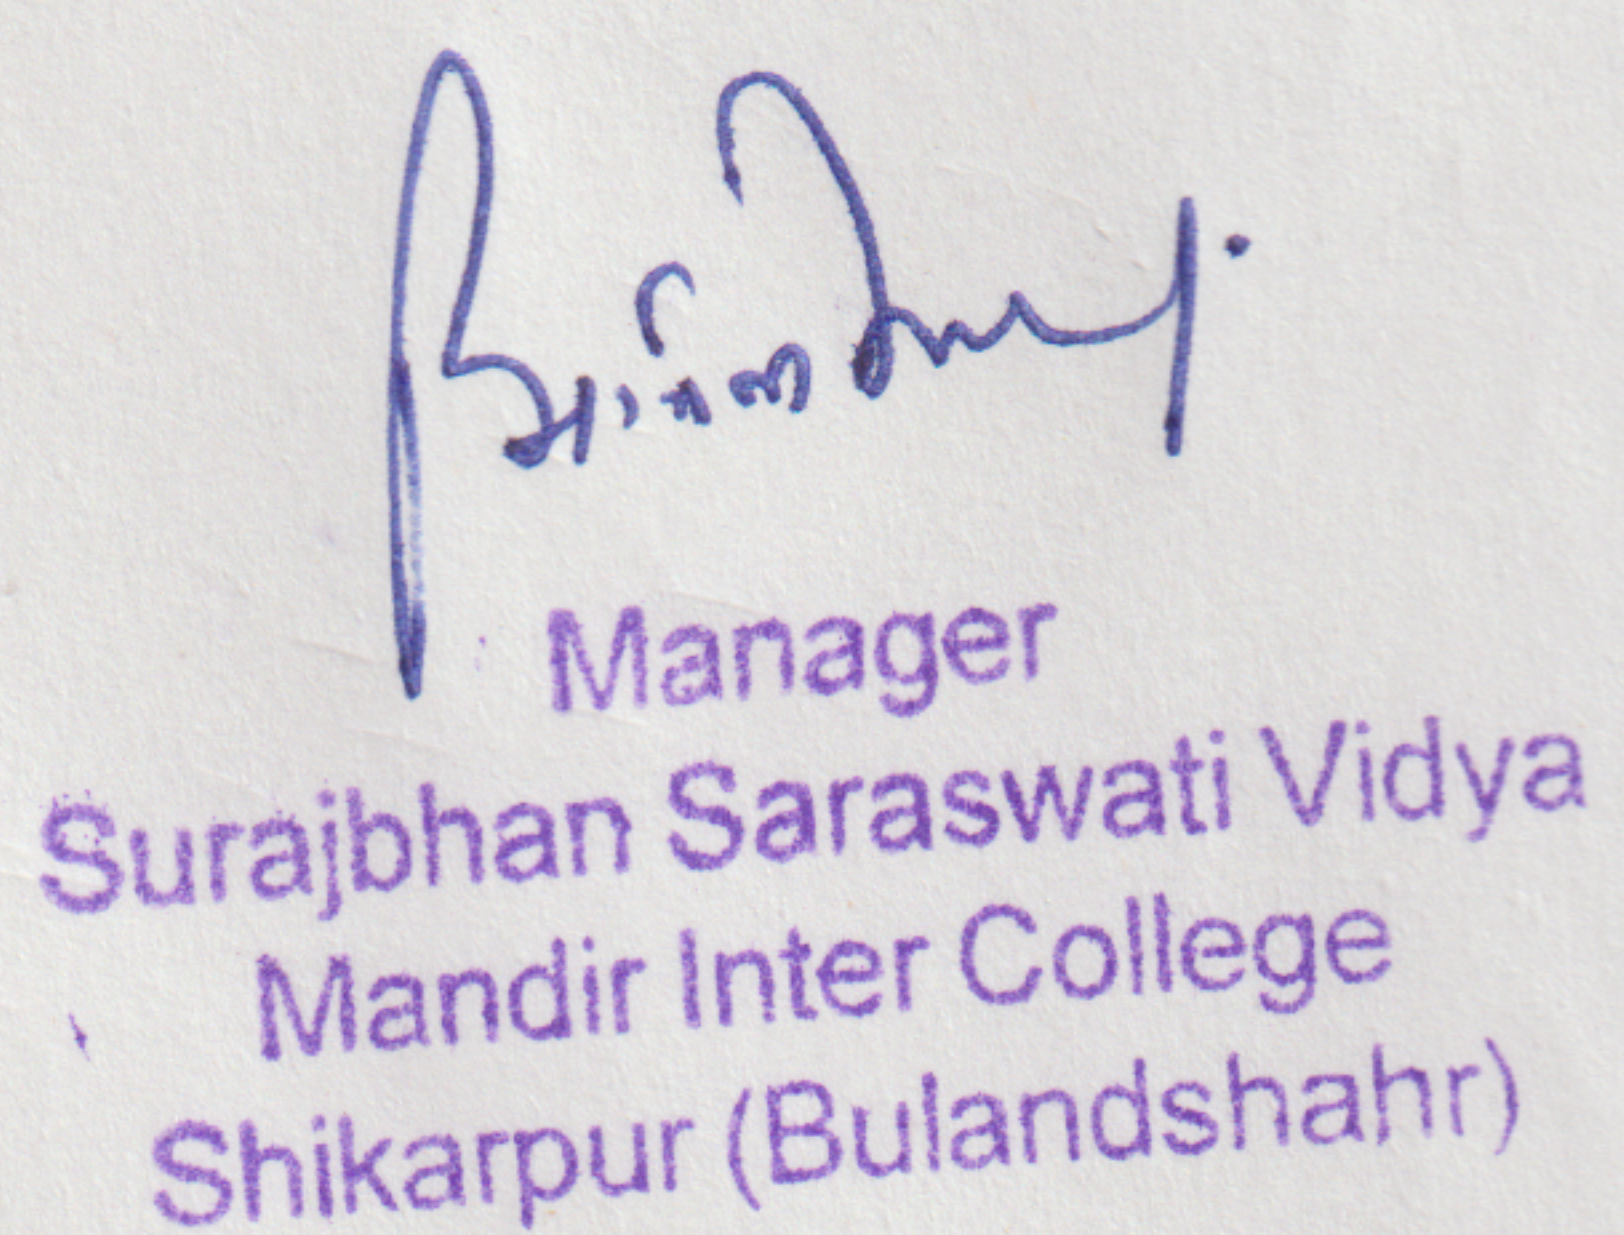 Manager
Surajbhan Saraswati Vidya
Mandir Inter College
Shikarpur (Bulandshahr)